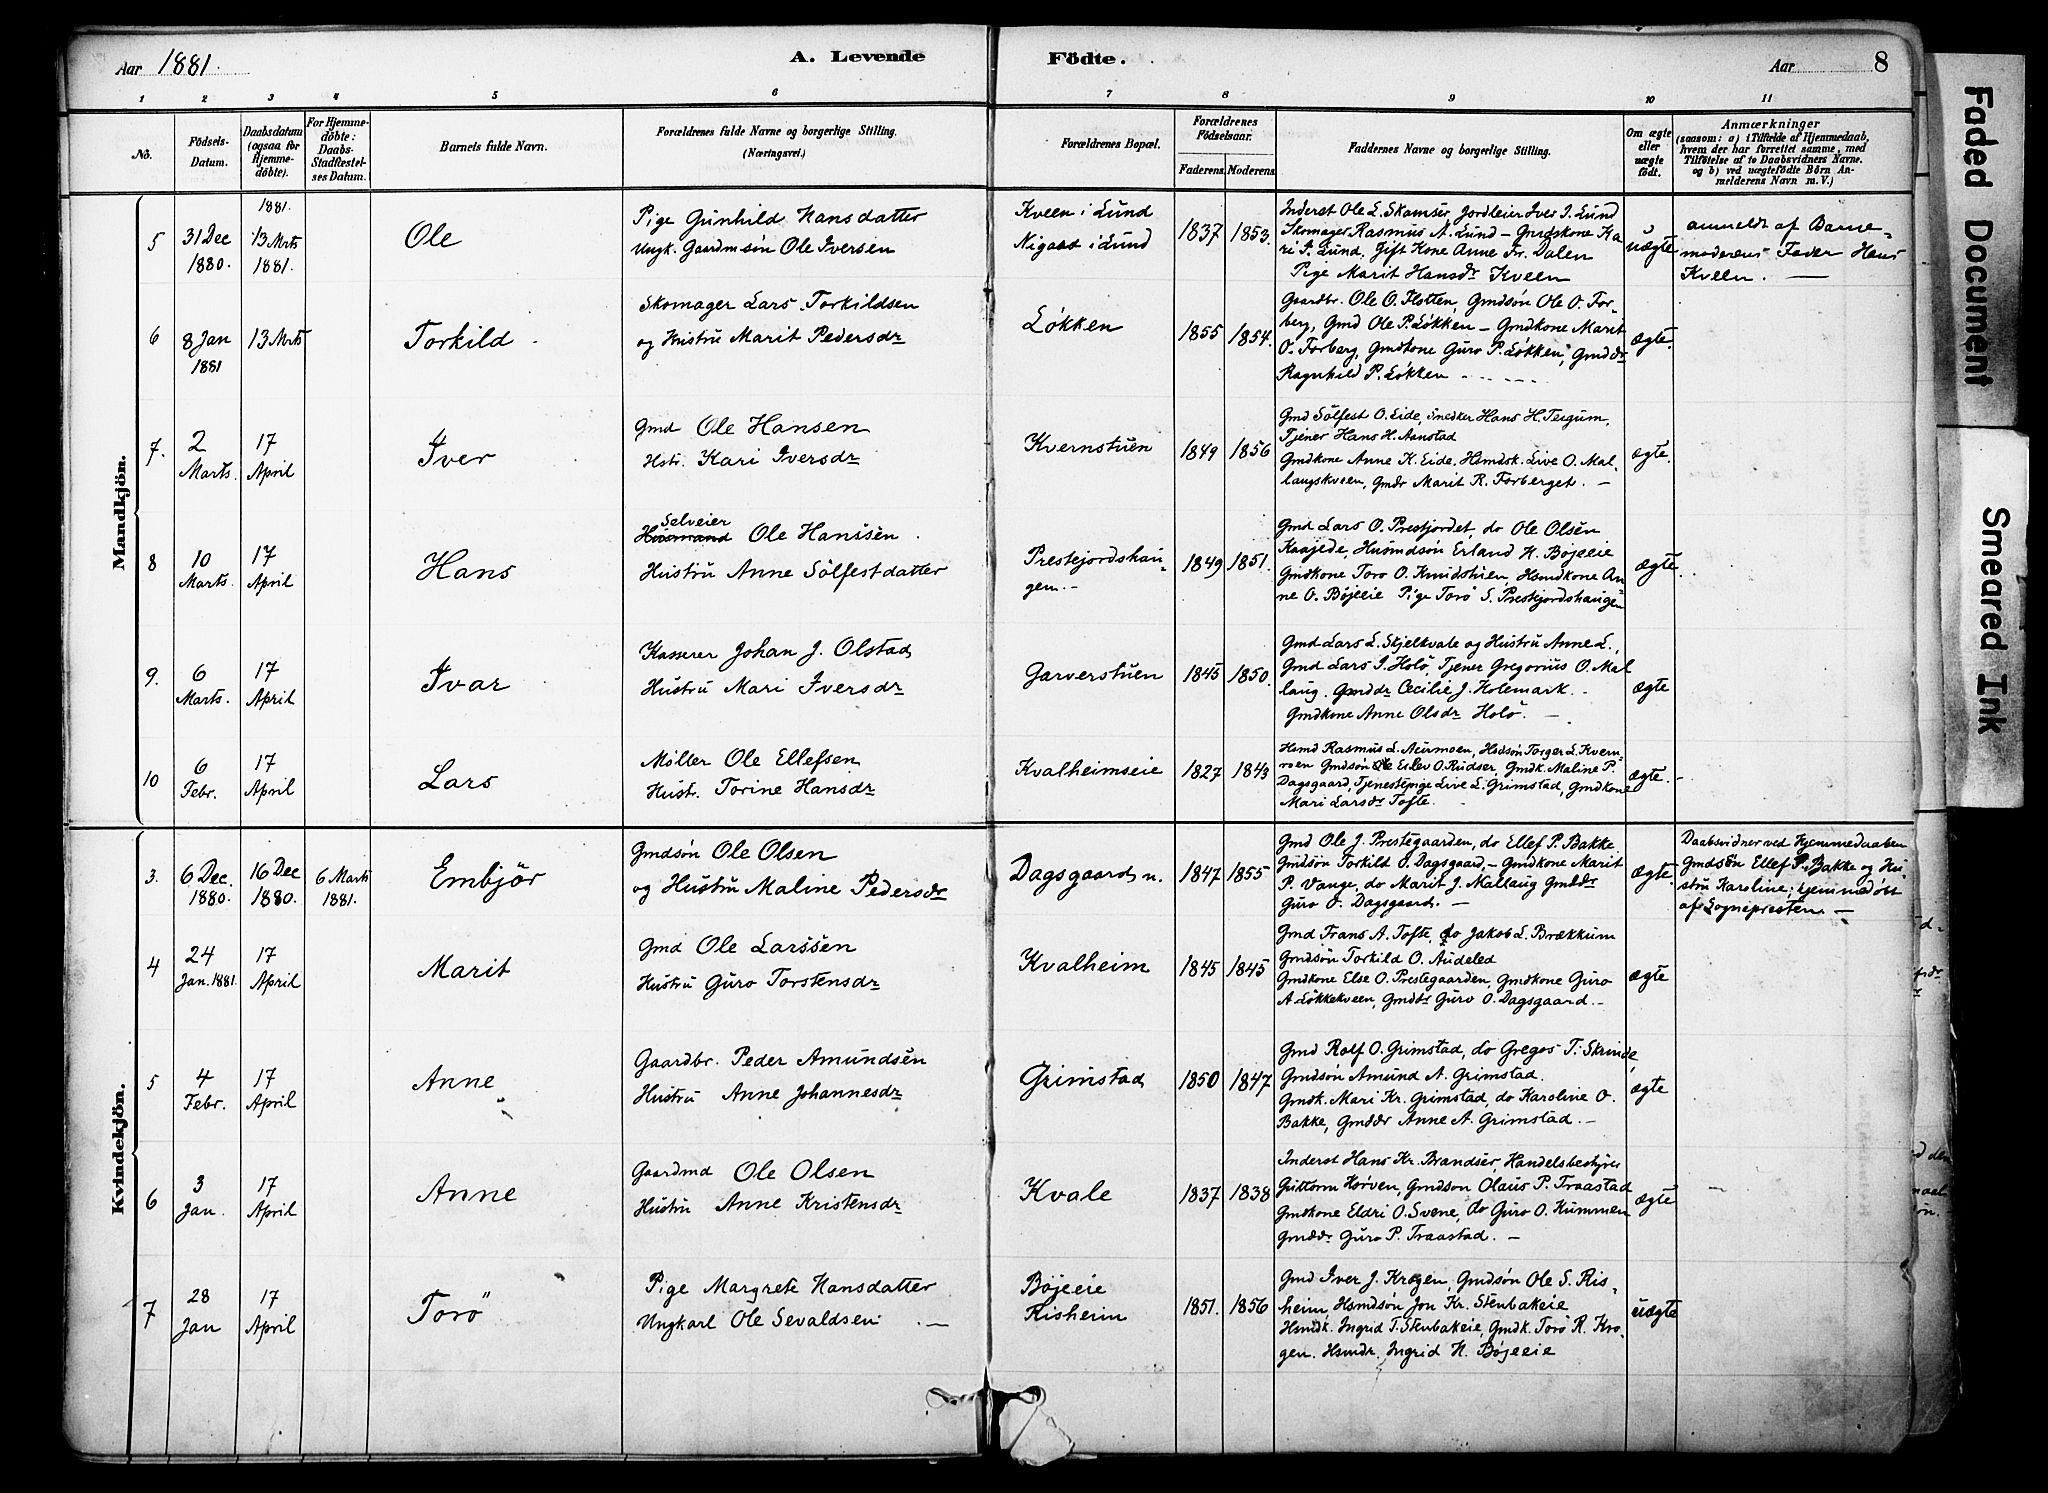 Aar 1881.
A. Levende Födte.
Aar 8
1 2 3 4 5 6 7 8 9 10 11
No.
Födsels-Datum.
Daabsdatum (ogsaa for Hjemme-döbte).
For Hjemme-döbte: Daabs-Stadfæstel-ses Datum.
Barnets fulde Navn.
Forældrenes fulde Navne og borgerlige Stilling.
(Næringsvei.)
Forældrenes Bopæl.
Forældrenes Födselsaar.
Faderens Moderens
Faddernes Navne og borgerlige Stilling.
Om ægte eller uægte födt.
Anmærkninger
(saasom: a) i Tilfælde af Hjemmedaab,
hvem der har forrettet samme, med
Tilföielse af to Daabsvidners Navne.
og b) ved uægtefödte Börn An-
melderens Navn m. V.)
Mandkjön.
5
31 Dec 1880.
1881. 13 Mrts 1881.
Ole
Pige Gunhild Hansdatter
Ungk. Gaardmsön Ole Iversen
Kveen i Lund
Nigaard i Lund
1837 1853.
Inderst Ole L. Skamser, Jordleier Iver I. Lund
Skomager Rasmus A. Lund - Gmdskone Ka-
ri P. Lund, Gift Kone Anne Fr. Dalen
Pige Marit Hansdr Kveen
uægte
anmeldt af Barne-
moderens Fader Hans
Kveen. —
6
8 Jan 1881
13 Mrts
Torkild
Skomager Lars Torkildsen
og Hustru Marit Pedersdr
Løkken
1855 1854.
Gaardbr. Ole O. Flotten, Gmdsön Ole O. For-
berg, Gmd Ole P. Løkken - Gmdkone Marit
O. Forberg, Gmdkone Guro P. Løkken, Gmddr
Ragnhild P. Løkken
ægte.
7.
2 Marts.
17 April
Iver
Gmd Ole Hansen
Hstr. Kari Iversdr
Kvernstuen
1849 1856
Gmd Sölfest O. Eide, Snedker Hans H. Teigum,
Tjener Hans H. Aanstad
Gmdkone Anne K. Eide, Hsmdsk. Live O. Mal-
laugskveen, Gmdr Marit R. Forberget. —
ægte.
8
10 Marts.
17 April
Hans
Selveier
Husmand Ole Hanssen.
Hustru Anne Sölfestdatter
Prestejordshau-
gem. -
1849 1851.
Gmd Lars O. Prestjordet, do Ole Olsen
Kaajede, Husmdsön Erland H. Bøjeeie
Gmdkone Toro O. Knudstuen, Hsmdkone An-
ne O. Bøjeeie Pige Torö S. Prestejordshaugen
ægte.
9.
6 Marts.
17 April
Ivar
Kasserer Johan J. Olstad
Hustru Mari Iversdr
Garverstuen
1845 1850.
Gmd Lars L. Skjelkvale og Hustru Anne L.,
Gmd Lars I. Holö, Tjener Gregorius O. Mal
laug. Gmddr Cecilie J. Holemark. -
Gmdkone Anne Olsdr Holö. —
ægte
10
6 Febr.
17 April
Lars
Møller Ole Ellefsen
Hustr. Torine Hansdr
Kvalheimseie
1827 1843
Hsmd Rasmus L. Aurmoen, Hsdsön Torger L. Kvern-
moen Gmdsön Ole Eslev O. Rudser, Gmdk. Maline P.
Dagsgaard, Tjenestepige Live L. Grimstad, Gmdkone
Mari Larsdr Tofte.
ægte. -
Kvindekjön.
3.
6 Dec. 1880.
16 Dec 1880.
6 Marts 1881.
Embjör
Gmdsön Ole Olsen
og Hustru Maline Pedersdr
Dagsgaard n.
1847 1855
Gmd Ole J. Prestegaarden, do Ellef P. Bakke
Gmdsön Torkild O. Dagsgaard, - Gmdkone Marit
P. Vange, do Marit J. Mallaug Gmddr
Guro O. Dagsgaard. —
ægte.
Daabsvidner ved Hjemmedaaben
Gmdsön Ellef P. Bakke og Hu-
stru Karoline; hjemmedøbt
af Sognepresten. —
4
24 Jan. 1881.
17 April
Marit
Gmd Ole Larssen
Hustru Guro Torstensdr
Kvalheim
1845 1845
Gmd Frans A. Tofte, do Jakob L. Brækkum
Gmdsön Torkild O. Audeled
Gmdkone Else O. Prestegaarden, Gmdkone Guro
A. Løkkekveen, Gmddr Guro O. Dagsgaard. —
ægte
5
4 Febr.
17 April
Anne
Gaardbr. Peder Amundsen
Hustru Anne Johannesdr
Grimstad
1850 1847
Gmd Rolf O. Grimstad, do Gregos T. Skrinde,
Gmdsön Amund A. Grimstad.
Gmdk. Mari Kr. Grimstad, do Karoline O.
Bakke, Gmddr Anne A. Grimstad. —
ægte
6
3 Jan.
17 April
Anne
Gaardmd Ole Olsen
Hustru Anne Kristensdr
Kvale
1837 1838
Inderst Hans Kr. Brandser, Handelsbestyrer
Guttorm Horven, Gmdsön Olaus P. Traastad
Gmdkone Eldri O. Svene, do Guro O. Kummen
Gmddr Guro P. Traastad. —
ægte
—
7
28 Jan
17 April
Torö
Pige Margrete Hansdatter
Ungkarl Ole Sevaldsen. —
Bøjeeie
Risheim
1851. 1856
Gmd Iver J. Krogen, Gmdsön Ole S. Ris-
heim, Hsmdsön Jon Kr. Stenbakeie
Hsmdk. Ingrid T. Stenbakeie, Gmdk. Torö R. Kro-
gen. Hsmdr. Ingrid H. Bøjeeie
uægte
Faded Document
Smeared Ink